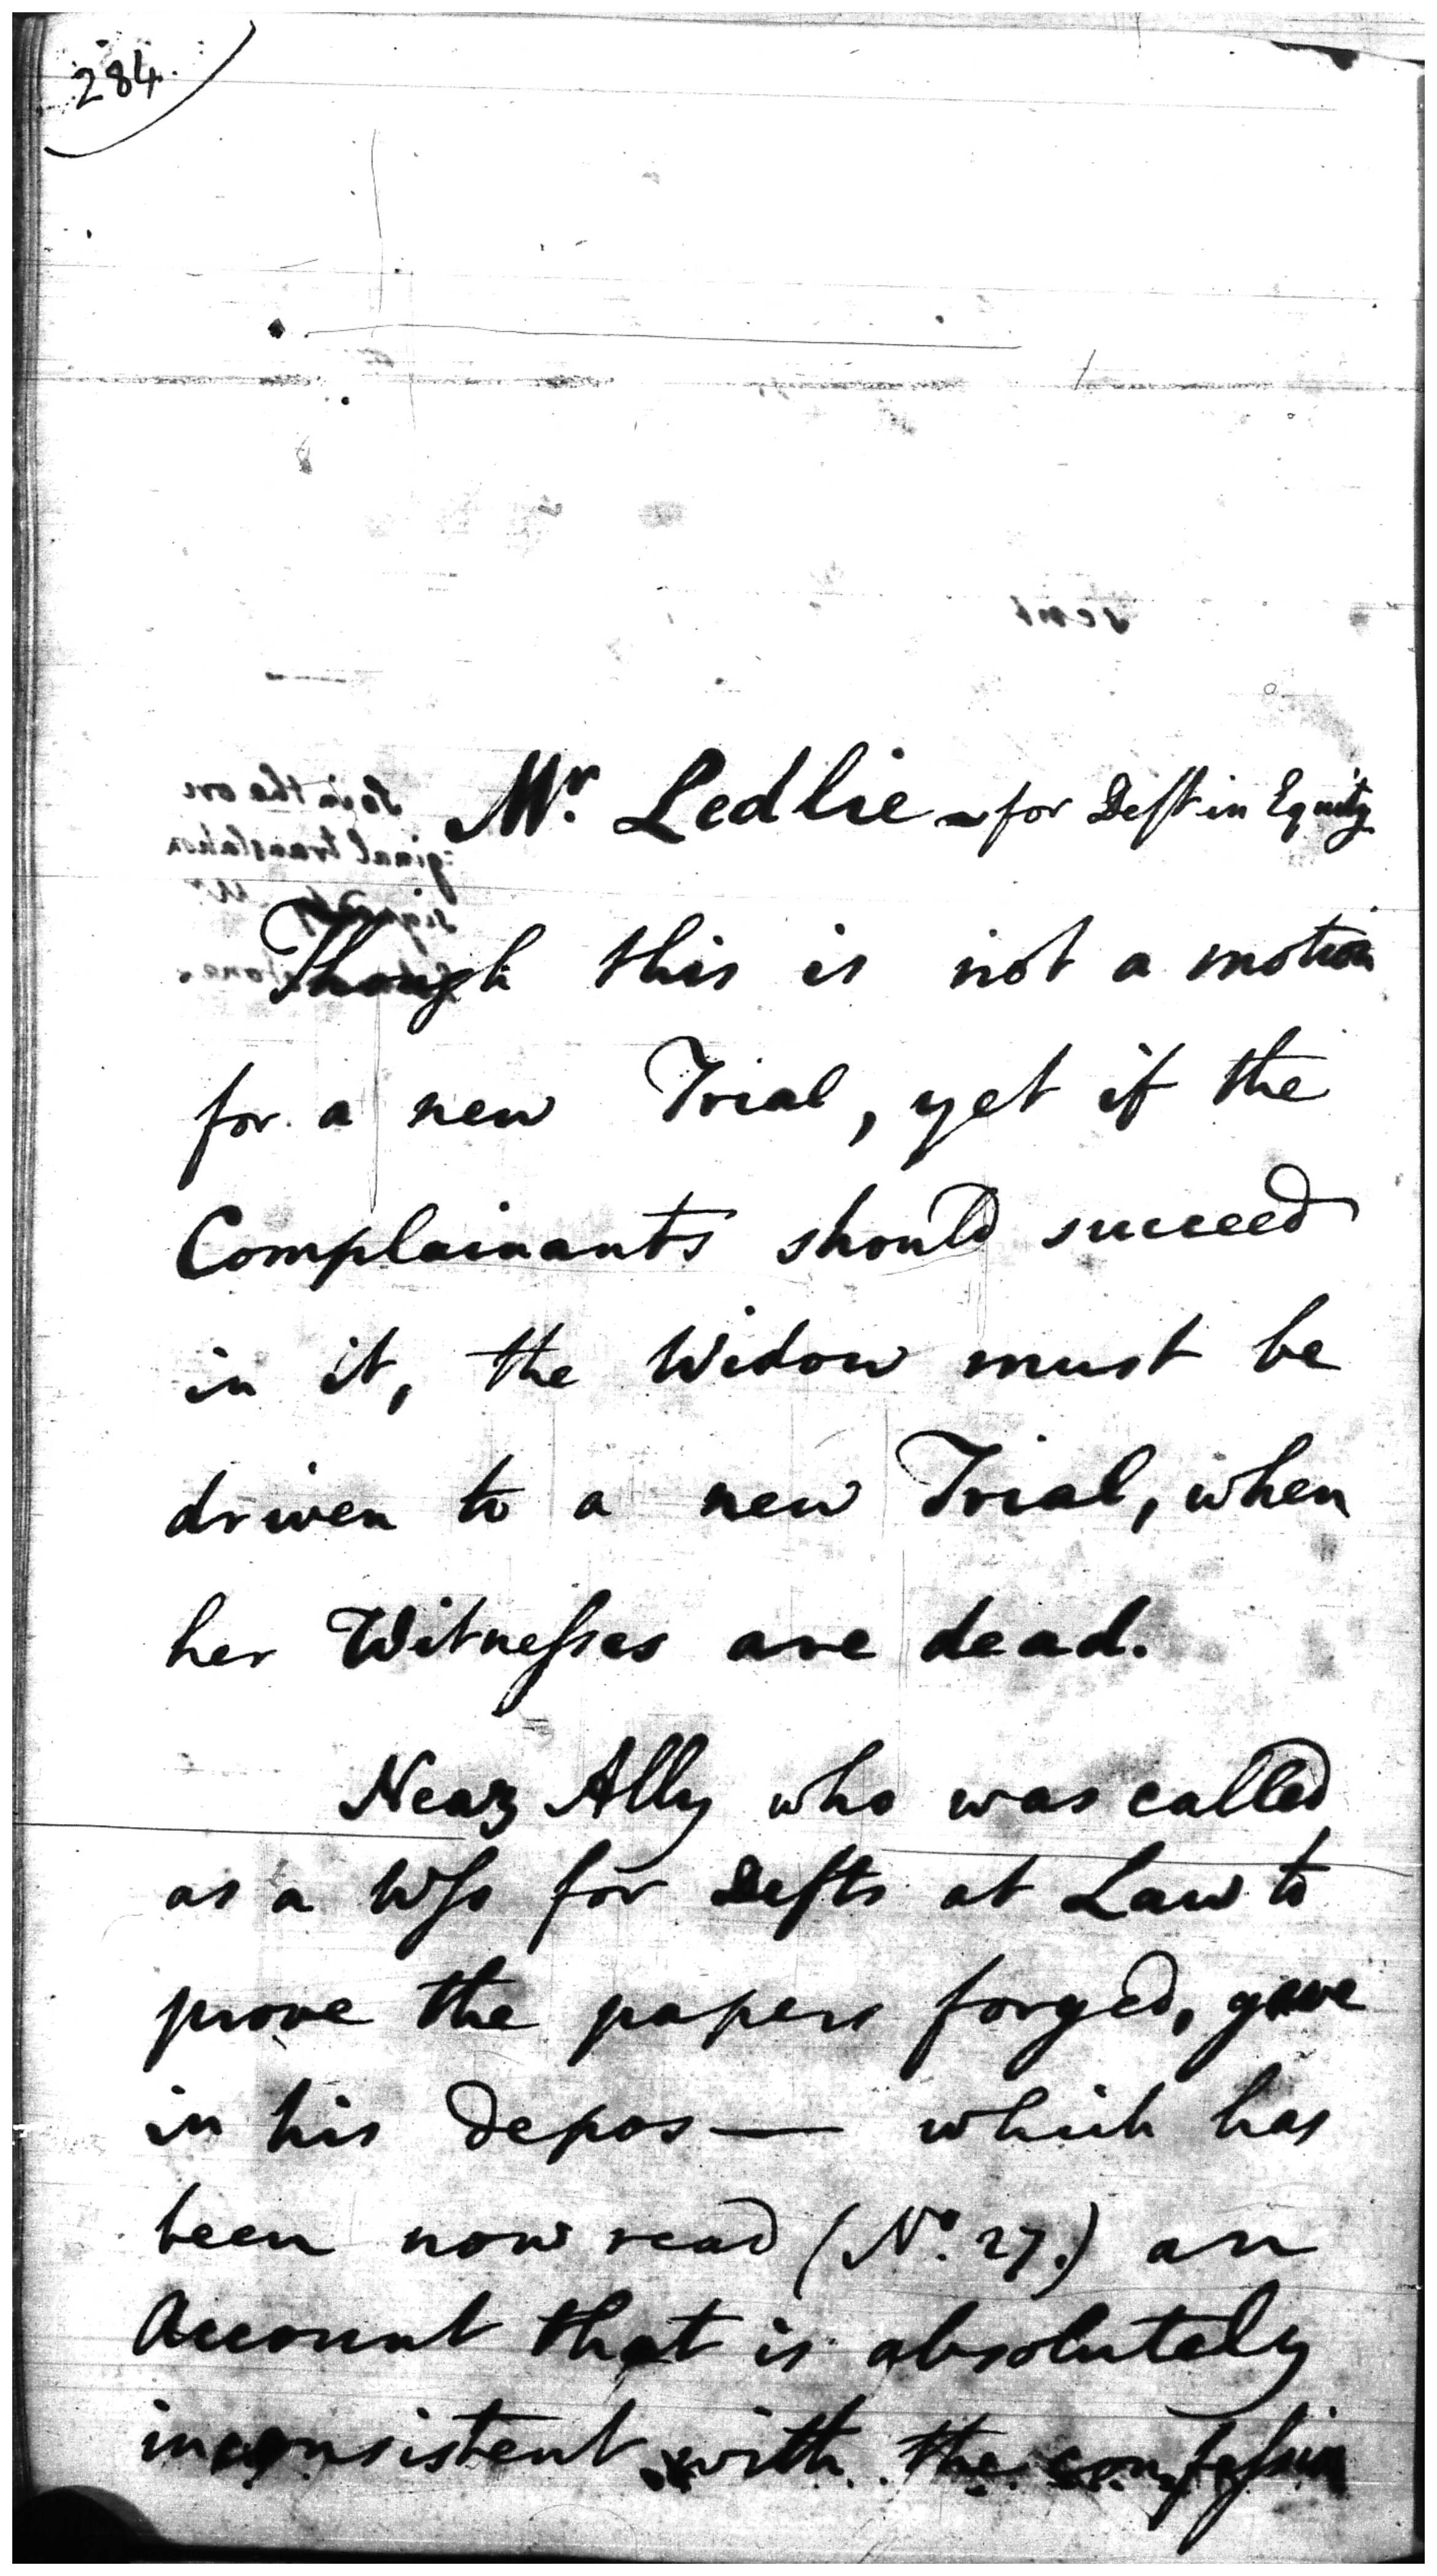 284.
Mr. Ledlie for Deft in Equity
Though this is not a motion
for a new Trial, yet if the
Complainants should succeed
in it, the Widow must be
driven to a new Trial, when
her Witnesses are dead.
Neaz Ally who was called
as a Wss for Defts at Law to
prove the papers forged, gave
in his depos— which has
been now read (No. 27.) an
Account that is absolutely
inconsistent with the confession